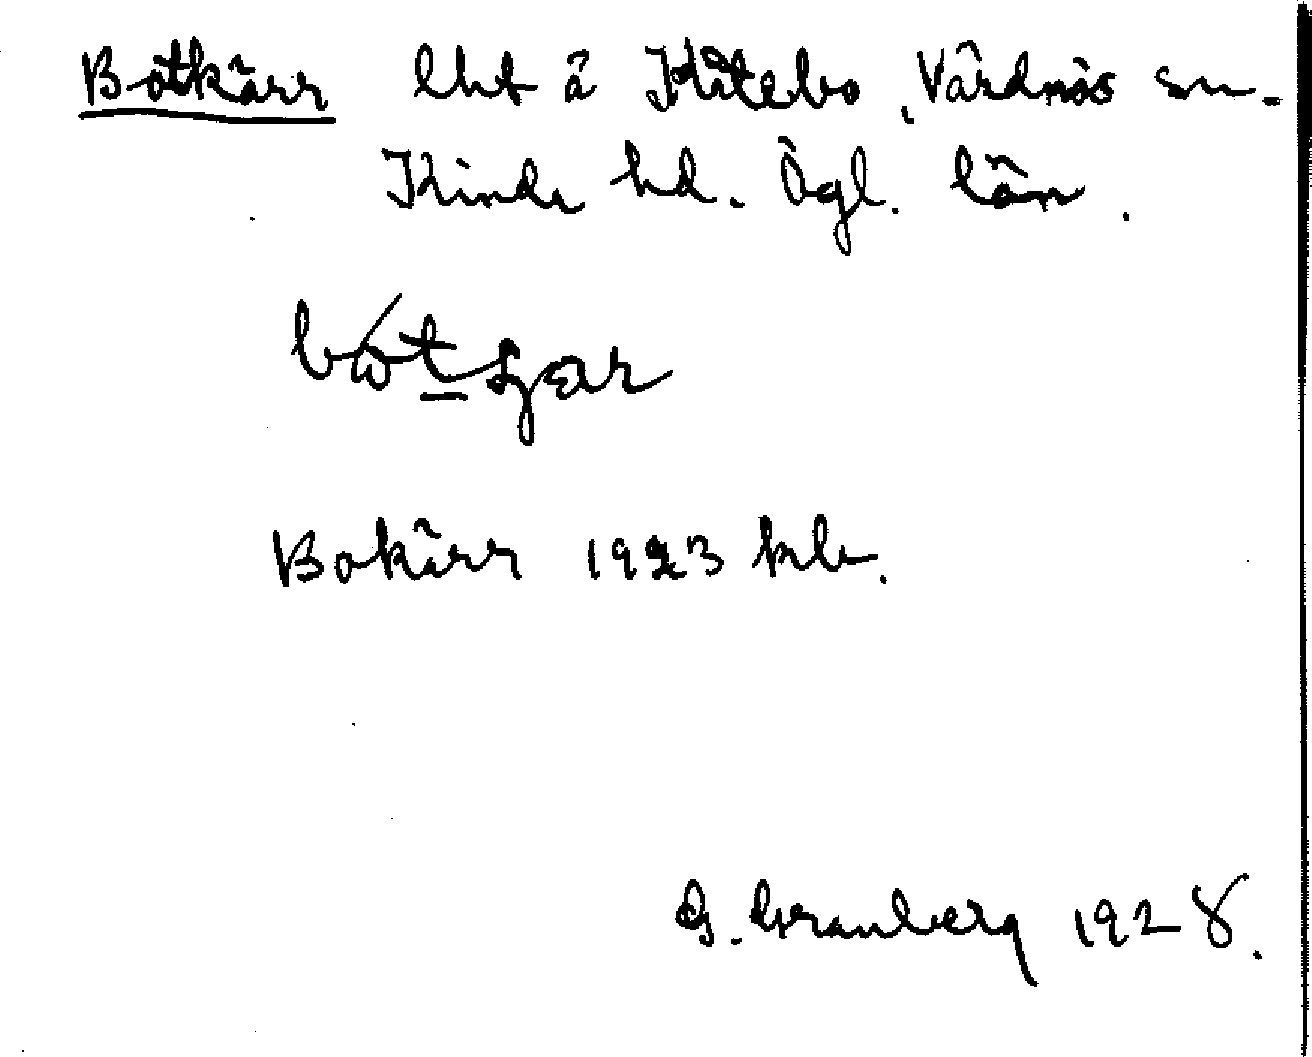 Botkärr lht å Kåtebo, Vårdnäs sn.
Kinda hd. Ögl. län.
Bokärr 1923 kb.
G. Granberg 1928.